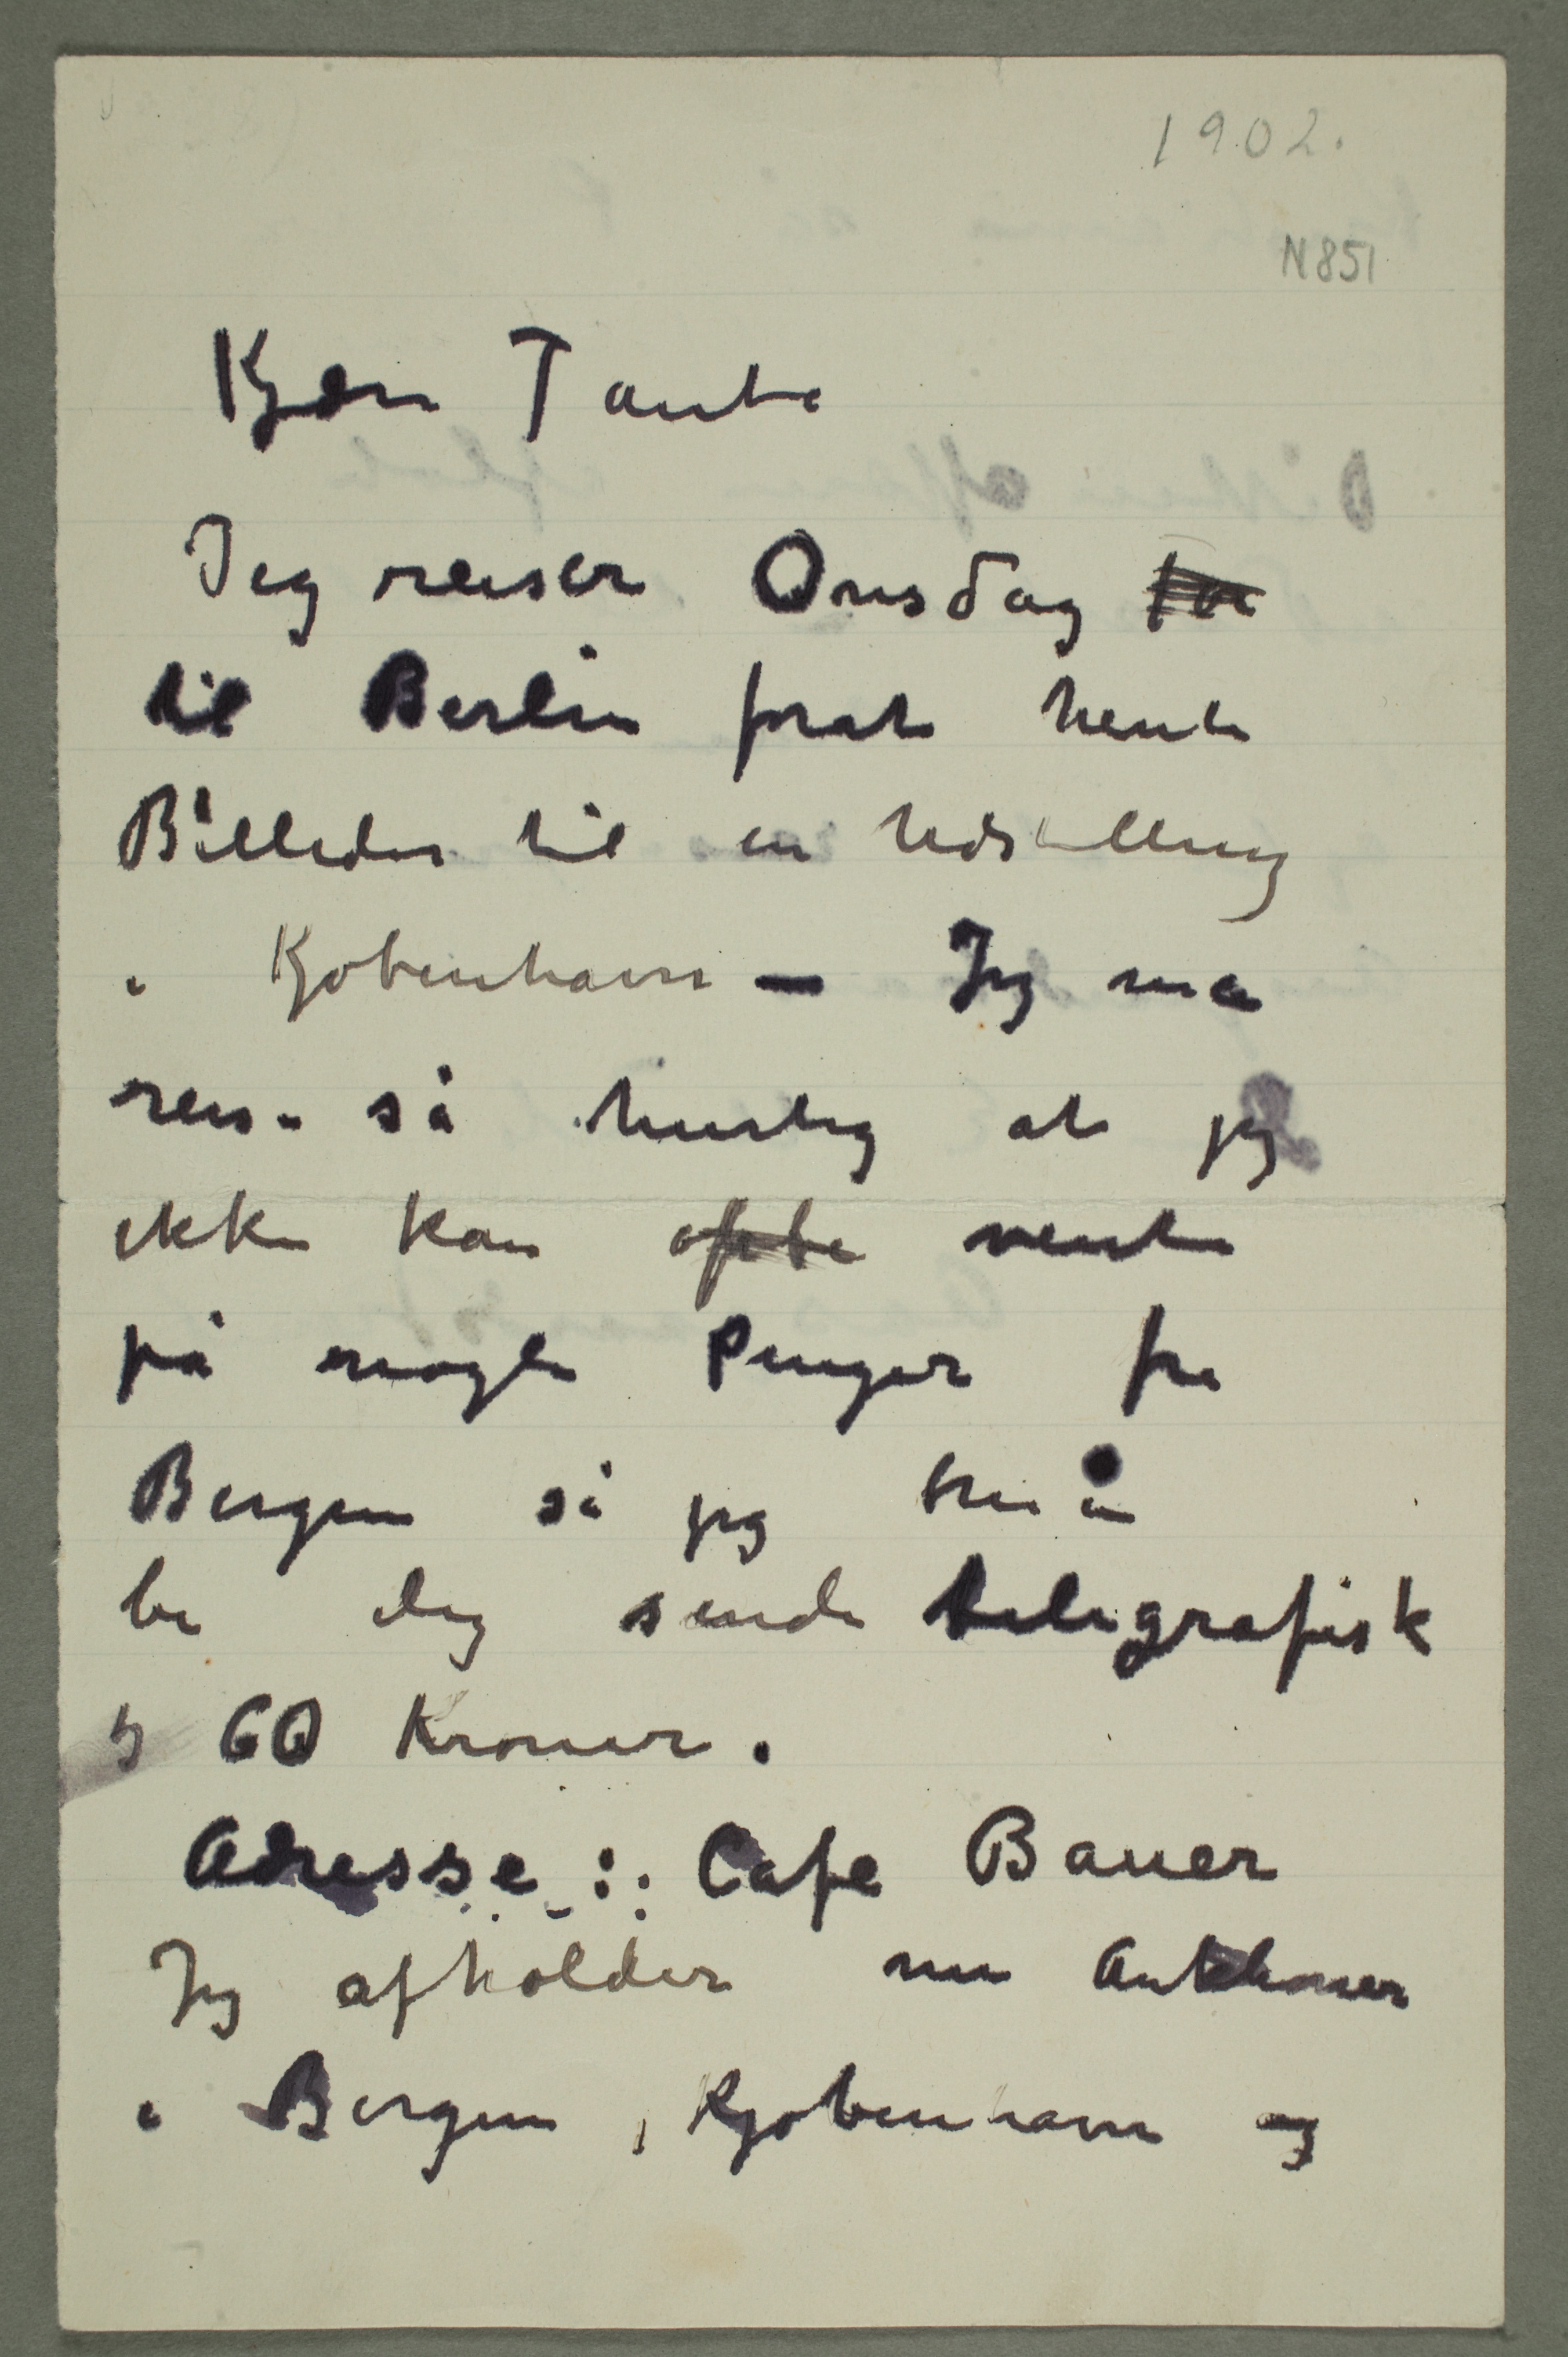 1902.
N 851
Kjære Tante
Jeg reiser Onsdag
til Berlin forat hente
Billeder til en Udstilling
i Kjøbenhavn – Jeg må
reise så hurtig at jeg
ikke kan vente
på nogle Penger fra
Bergen så jeg må
be dig sende telegrafisk
60 Kroner.
Adresse : Cafe Bauer
Jeg afholder nu Auktioner
i Bergen, Kjøbenhavn og